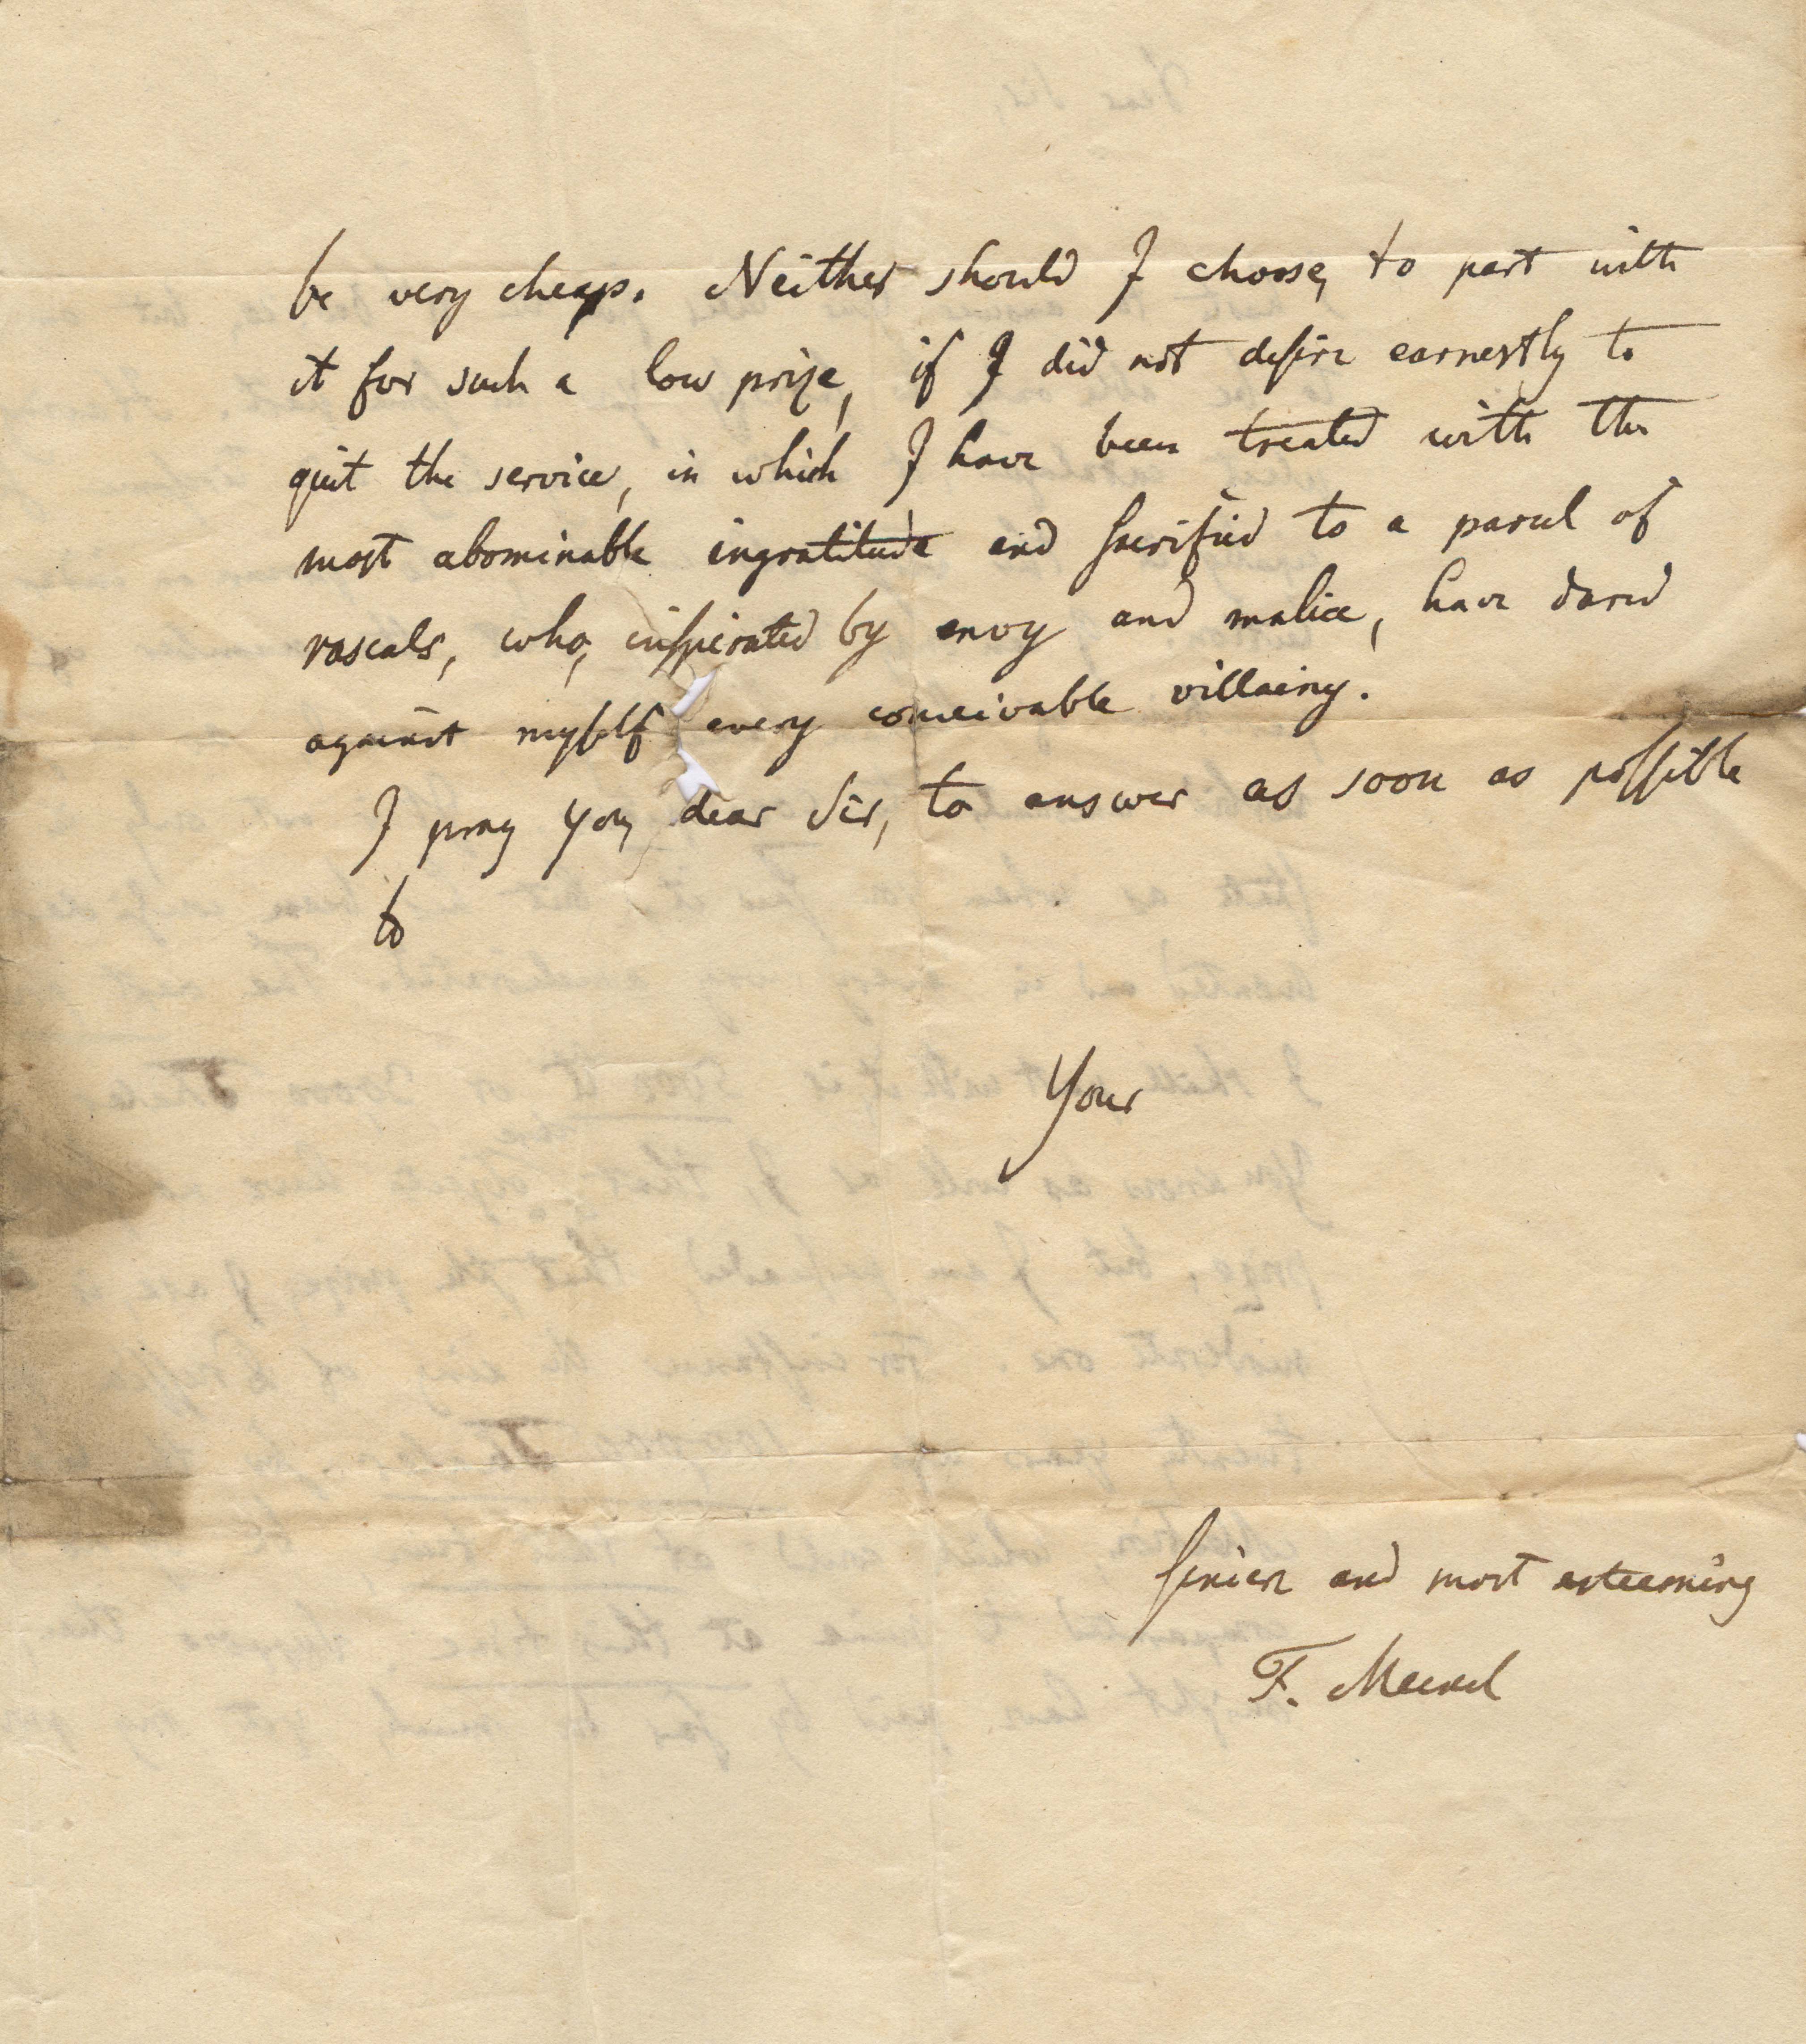 be very cheap. Neither should I choose, to part with
it for such a low prize, if I did not desire earnestly to
quit the service, in which I have been treated with the
most abominable ingratitude and sacrificed to a parcel of
rascals, who, inspirated by envy and malice, have dared
against myself every conceivable villainy.
I pray you, dear Sir, to answer as soon as possible
to
Your
sincere and most esteeming
F. Meckel